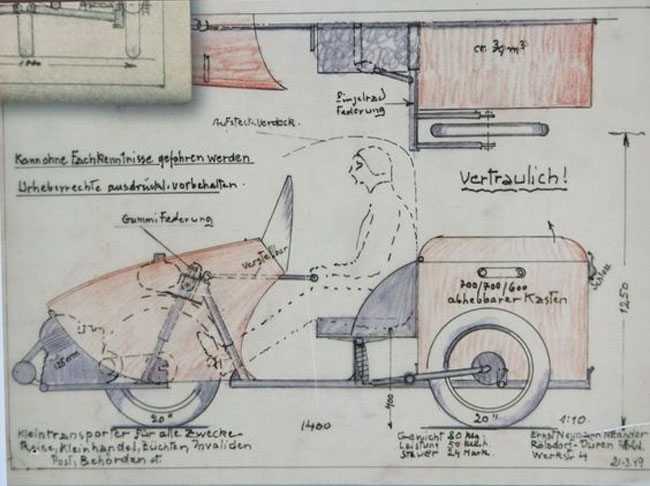 1100
ca. 3qm³
Einzelrad
Federung
Aufsteck-Verdeck.
Kann ohne Fachkenntnisse gefahren werden
Urheberrechte ausdrückl. vorbehalten.
Vertraulich!
Gummi Federung
verstellbar
700/700/600
abhebbarer Kasten
Schloß
1250
125ccm
400
20"
1400
20"
1:10.
Kleintransporter für alle Zwecke
Reise, Kleinhandel, Züchter, Invaliden
Post, Behörden et.
Gewicht 80 Kg.
Leistung 50 Kil.h.
Steuer 24 Mark.
Ernst Neumann Neander
Rölsdorf-Düren Rhld.
Werkstr 4
21.3.49